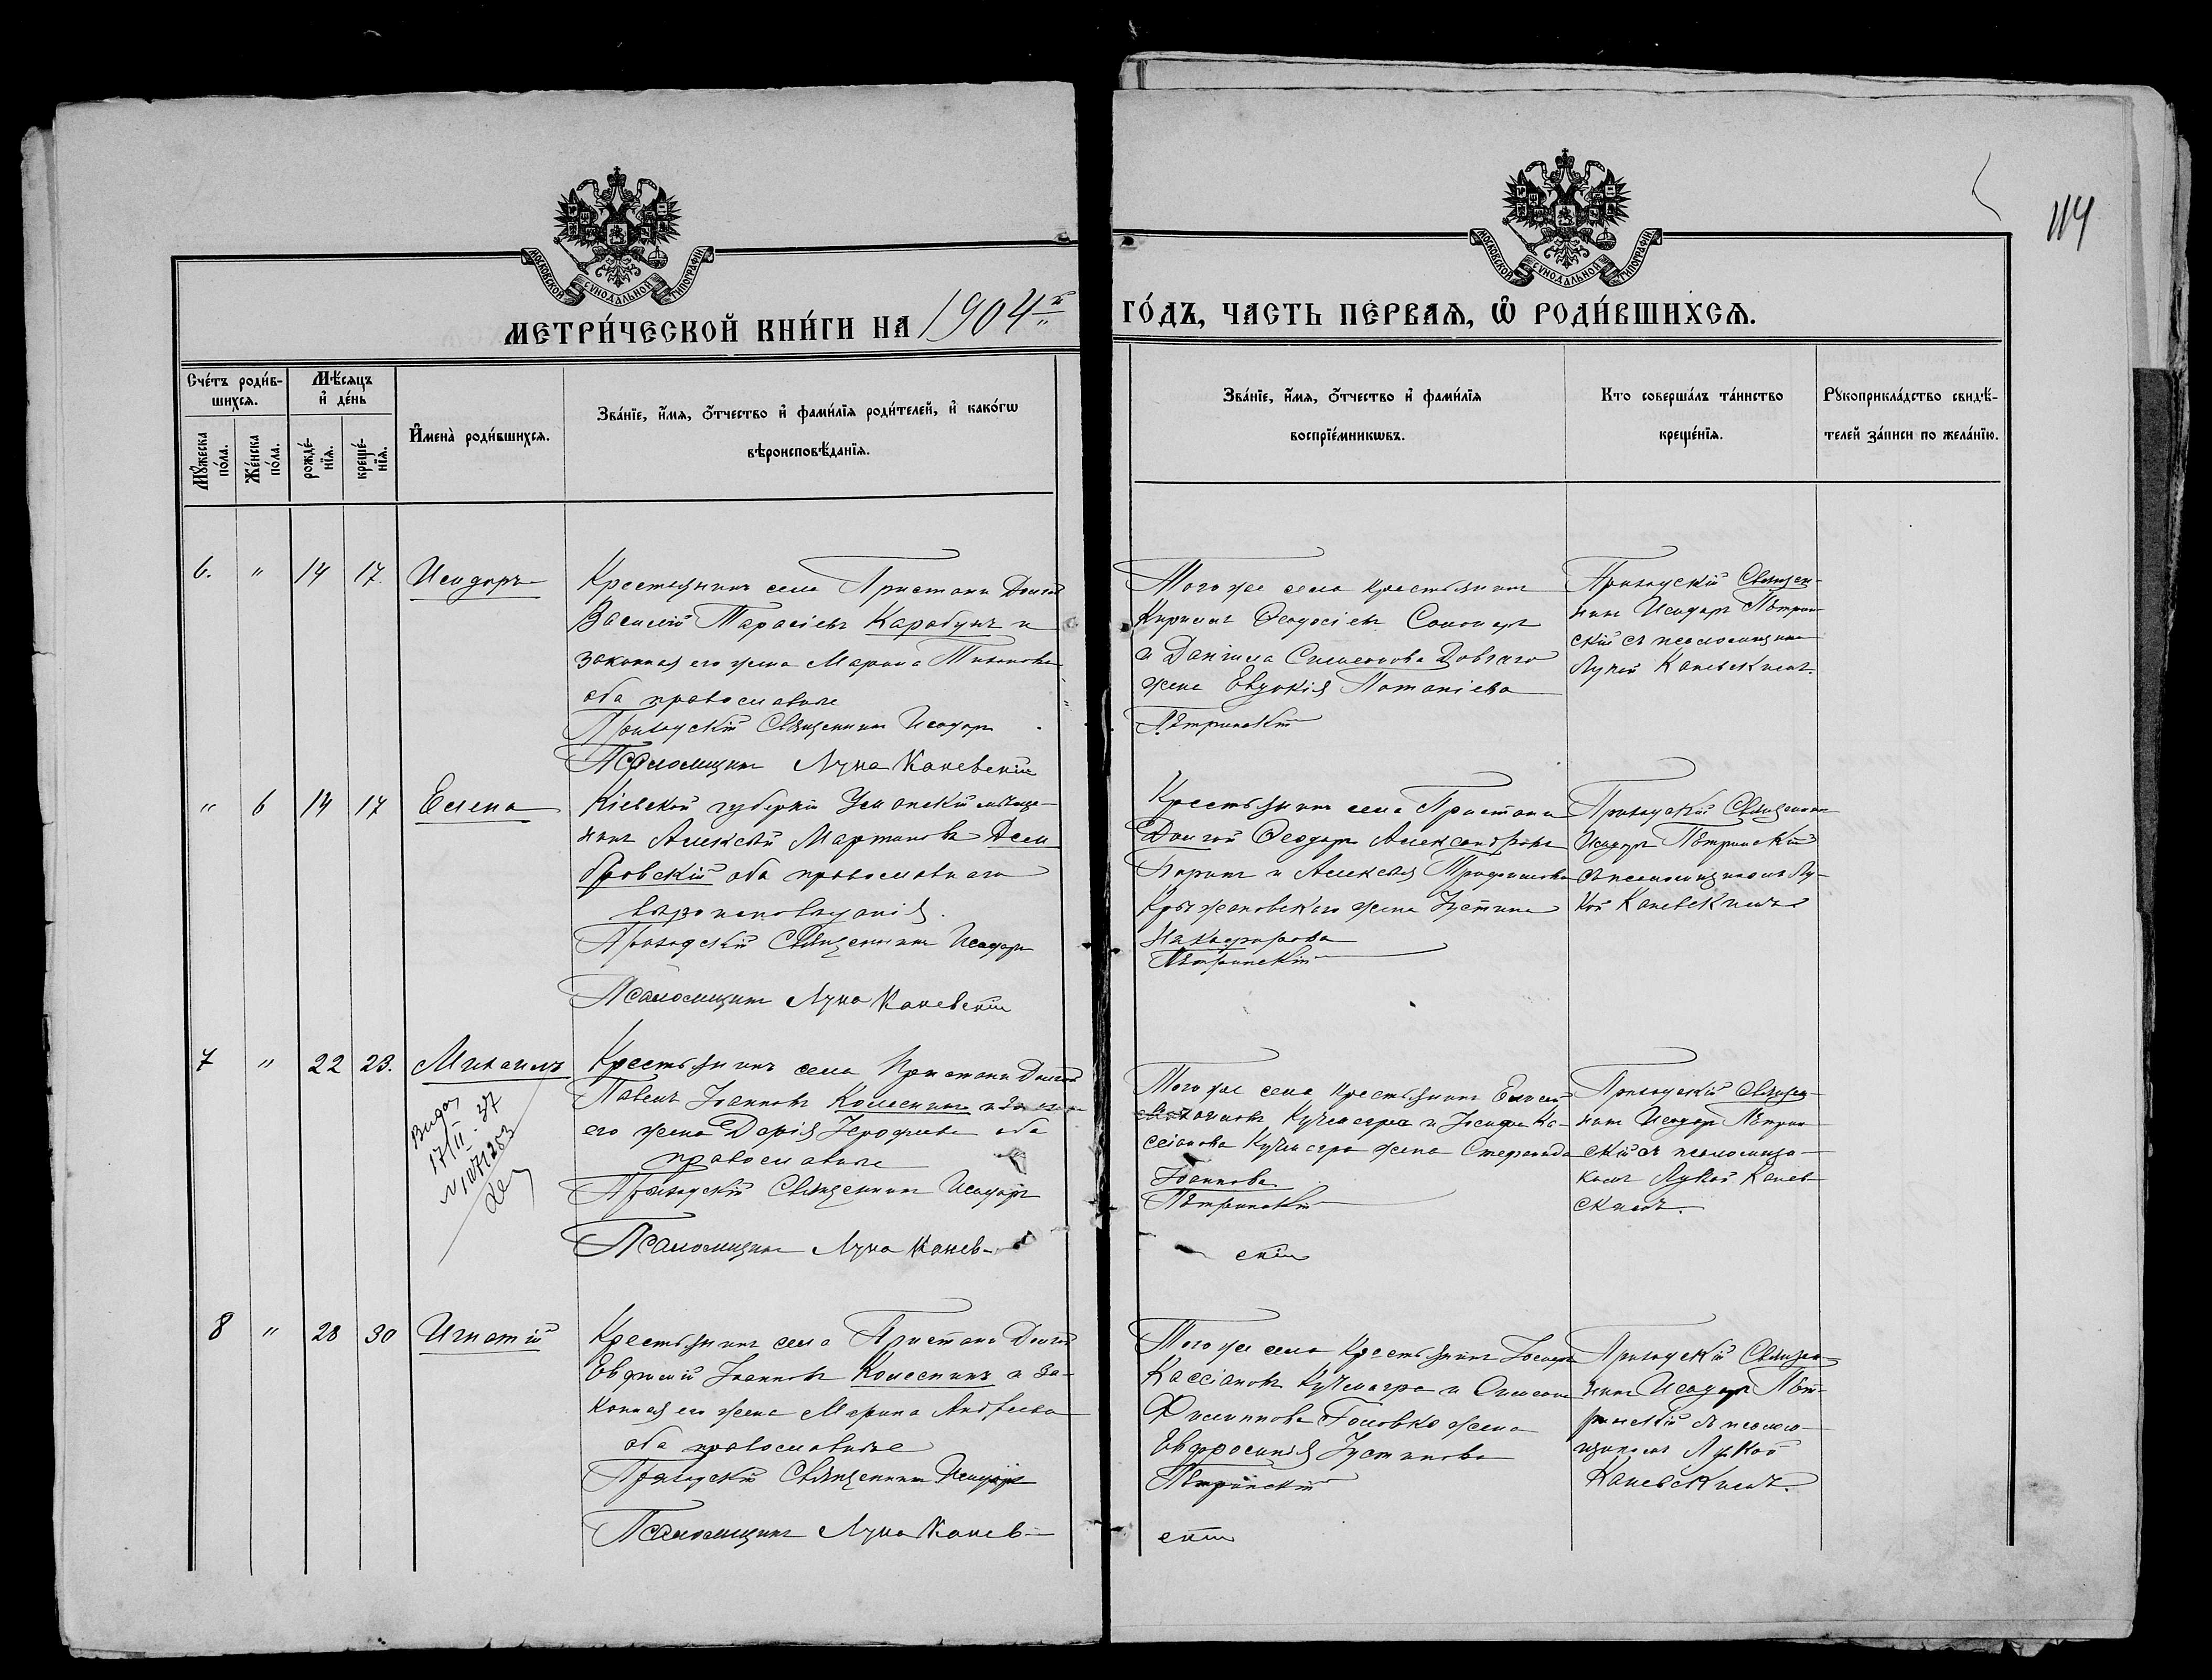 114
МОСКОВСКОЙ СѴНОДАЛЬНОЙ ТИПОГРАФІИ
МОСКОВСКОЙ СѴНОДАЛЬНОЙ ТИПОГРАФІИ
МЕТРИ́ЧЕСКОЙ КНИ́ГИ НА 1904й
ГО́ДЪ, ЧАСТЬ ПЕ́РВАѦ, Ѡ҆ РОДИ́ВШИХСѦ.
Сче́тъ роди́в-
шихсѧ.
Мѣ́сѧцъ
и҆ де́нь
Мꙋ́жеска
по́ла.
Же́нска
по́ла.
рожде́-
нїѧ.
креще́-
нїѧ.
И҆мена̀ роди́вшихсѧ.
Зва́нїе, и҆́мѧ, ѻ҆́тчество и҆ фами́лїѧ роди́телей, и҆ како́гѡ
вѣроисповѣ́данїѧ.
Зва́нїе, и҆́мѧ, ѻ҆́тчество и҆ фами́лїѧ
воспрїе́мникѡвъ.
Кто соверша́лъ та́инство
креще́нїѧ.
Рꙋкоприкла́дство свидѣ́-
телей за́писи по жела́нїю.
6. " 14 17. Исидоръ
Крестьянинъ села Пристани Долгой
Василій Тарасіевъ Карабунъ и
законная его жена Марина Тихонова
оба православные
Приходскій Священникъ Исидоръ
Псаломщикъ Лука Каневскій
Того же села крестьянинъ
Кириллъ Ѳеодосіевъ
и Даніила Симеонова Довгаго
жена Евдокія Потапіева
Пѣтринскій
Приходскій Священ-
никъ Исидоръ Пѣтрин-
скій съ псаломщикомъ
Лукой Каневскимъ.
" 6 14 17 Елена
Кіевской губерніи Уманскій мѣща-
нинъ Алексѣй Мартиновъ Дом
бровскій оба православнаго
вѣроисповѣданія.
Приходскій Священникъ Исидоръ
Псаломщикъ Лука Каневскій
Крестьянинъ села Пристани
Долгой Ѳеодоръ Александровъ
и Алексѣя Трофимова
Крыжановскаго жена Іустина
Никифорова
Пѣтринскій
Приходскій Священникъ
Исидоръ Пѣтринскій
съ псаломщикомъ Лу-
кой Каневскимъ
7 " 22 23. Михаилъ
17/II 37
N 1071253
Крестьянинъ села Пристани Долгой
Павелъ Іоанновъ Колесникъ и
его жена Дарія Іерофеева оба
православные
Приходскій Священникъ Исидоръ
Псаломщикъ Лука Канев-
Того же села крестьянинъ
Кучмагра и Іосифа Ка-
ссіанова Кучмагра жена Стефанида
Іоаннова
Пѣтринскій
скій
Приходскій Священ-
никъ Исидоръ Пѣтрин
скій съ псаломщи-
комъ Лукой Канев-
скимъ.
8 " 28 30 Игнатій
Крестьянинъ села Пристани Долгой
Евфимій Іоанновъ Колесникъ и за-
конная его жена Марина Андреева
оба православные
Приходскій Священникъ Исидоръ
Псаломщикъ Лука Канев-
Того же села Крестьянинъ Іосифъ
Кассіановъ Кучмагра и Симеона
Филиппова Головко жена
Евфросинія Іустинова
Пѣтринскій
скій
Приходскій Священ-
никъ Исидоръ Пѣт-
ринскій съ псалом-
щикомъ Лукой
Каневскимъ.